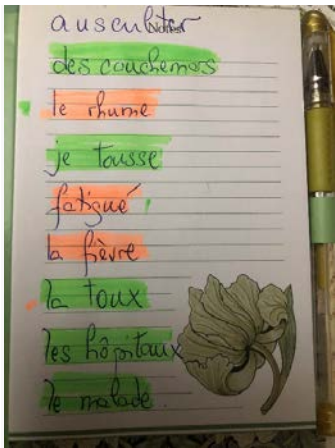 ausculter
Notes
des couchemars
le rhume
je tousse
fatigué
la fièvre
la toux
les hôpitaux
le malade.